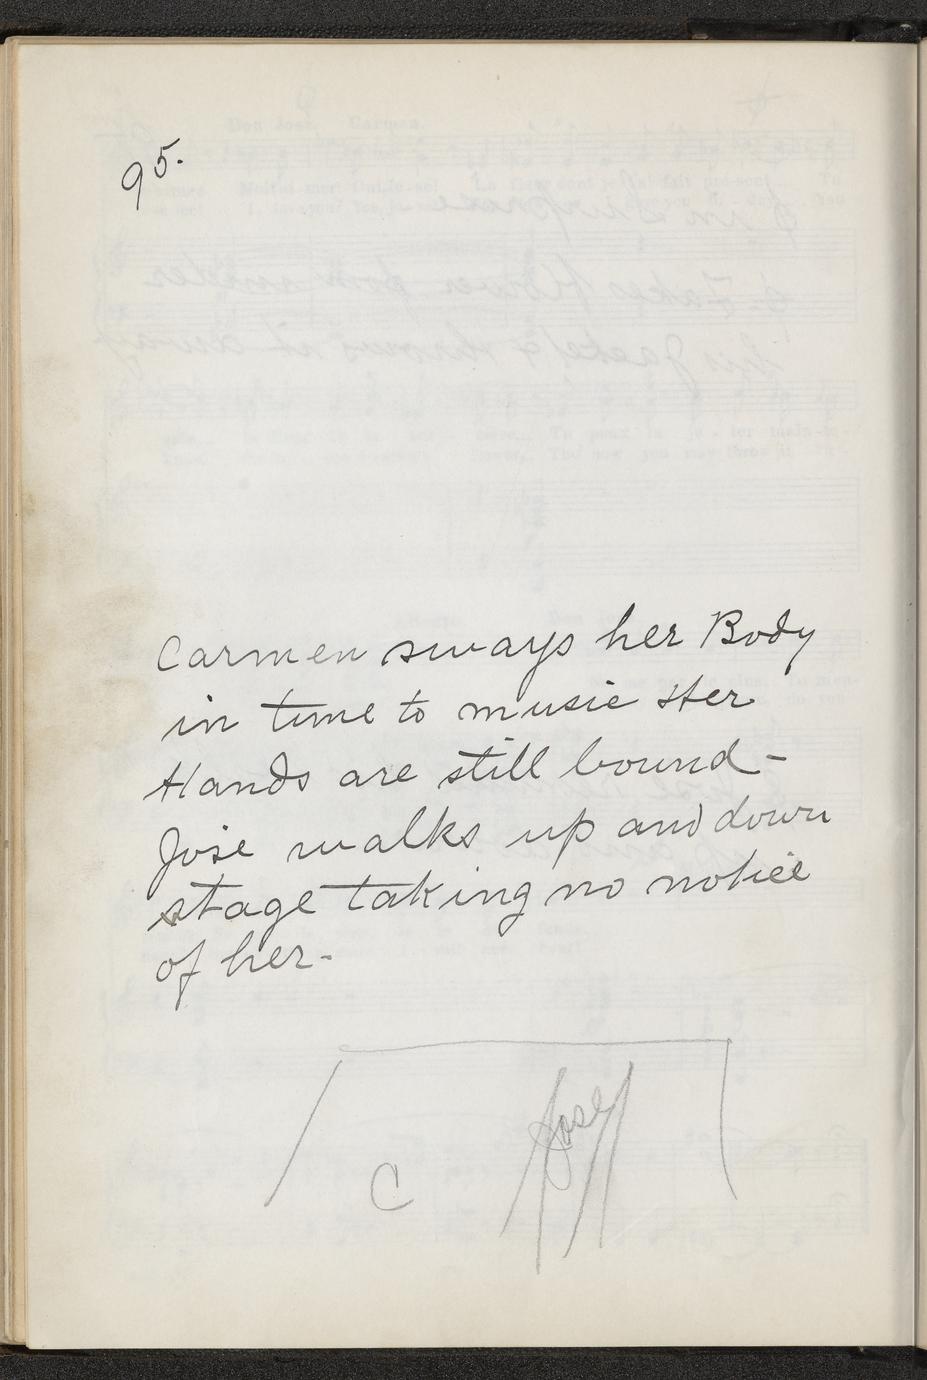 95.
Carmen sways her Body
in time to music Her
Hands are still bound -
Jose walks up and down
stage taking no notice
of her -
Jose
C